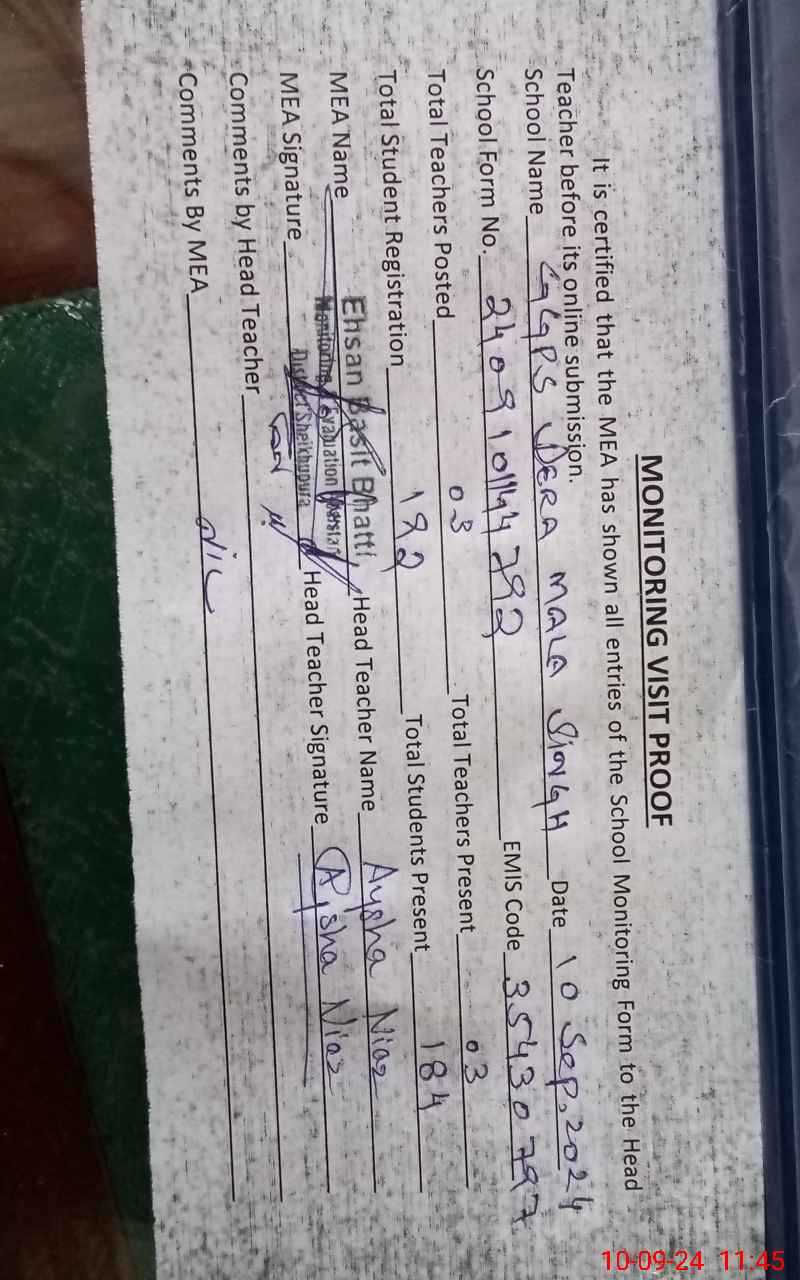 MONITORING VISIT PROOF
It is certified that the MEA has shown all entries of the School Monitoring Form to the Head
Teacher before its online submission.
School Name GGPS DERA MALA SINGH Date 10 Sep. 2024
School Form No. 2409101144792 EMIS Code 35430797
Total Teachers Posted 03 Total Teachers Present 03
Total Student Registration 192 Total Students Present 184
MEA Name Ehsan Basit Bhatti Head Teacher Name Aysha Niaz
Monitoring Evaluation
District Sheikhupura
MEA Signature Head Teacher Signature Aisha Niaz
Comments by Head Teacher
Comments By MEA
10-09-24 11:45